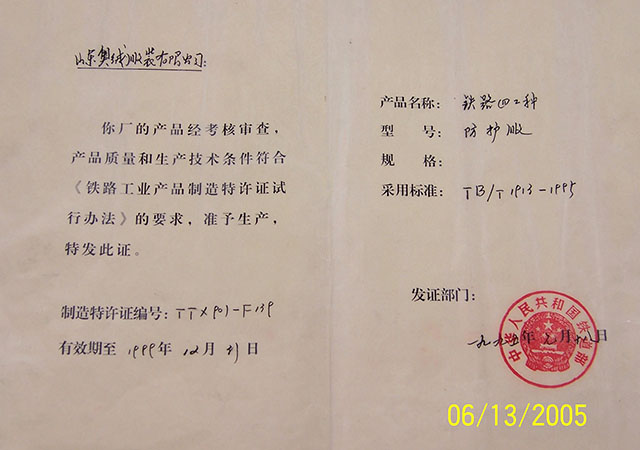 山东奥绒服装有限公司:
你厂的产品经考核审查，
产品质量和生产技术条件符合
《铁路工业产品制造特许证试
行办法》的要求，准予生产，
特发此证。
制造特许证编号: TTX901-F139
有效期至 1999年 12月 31日
产品名称: 铁路四工种
型 号: 防护服
规 格:
采用标准: TB/T 1913-1995
发证部门:
中华人民共和国铁道部
一九九五年 月 日
06/13/2005